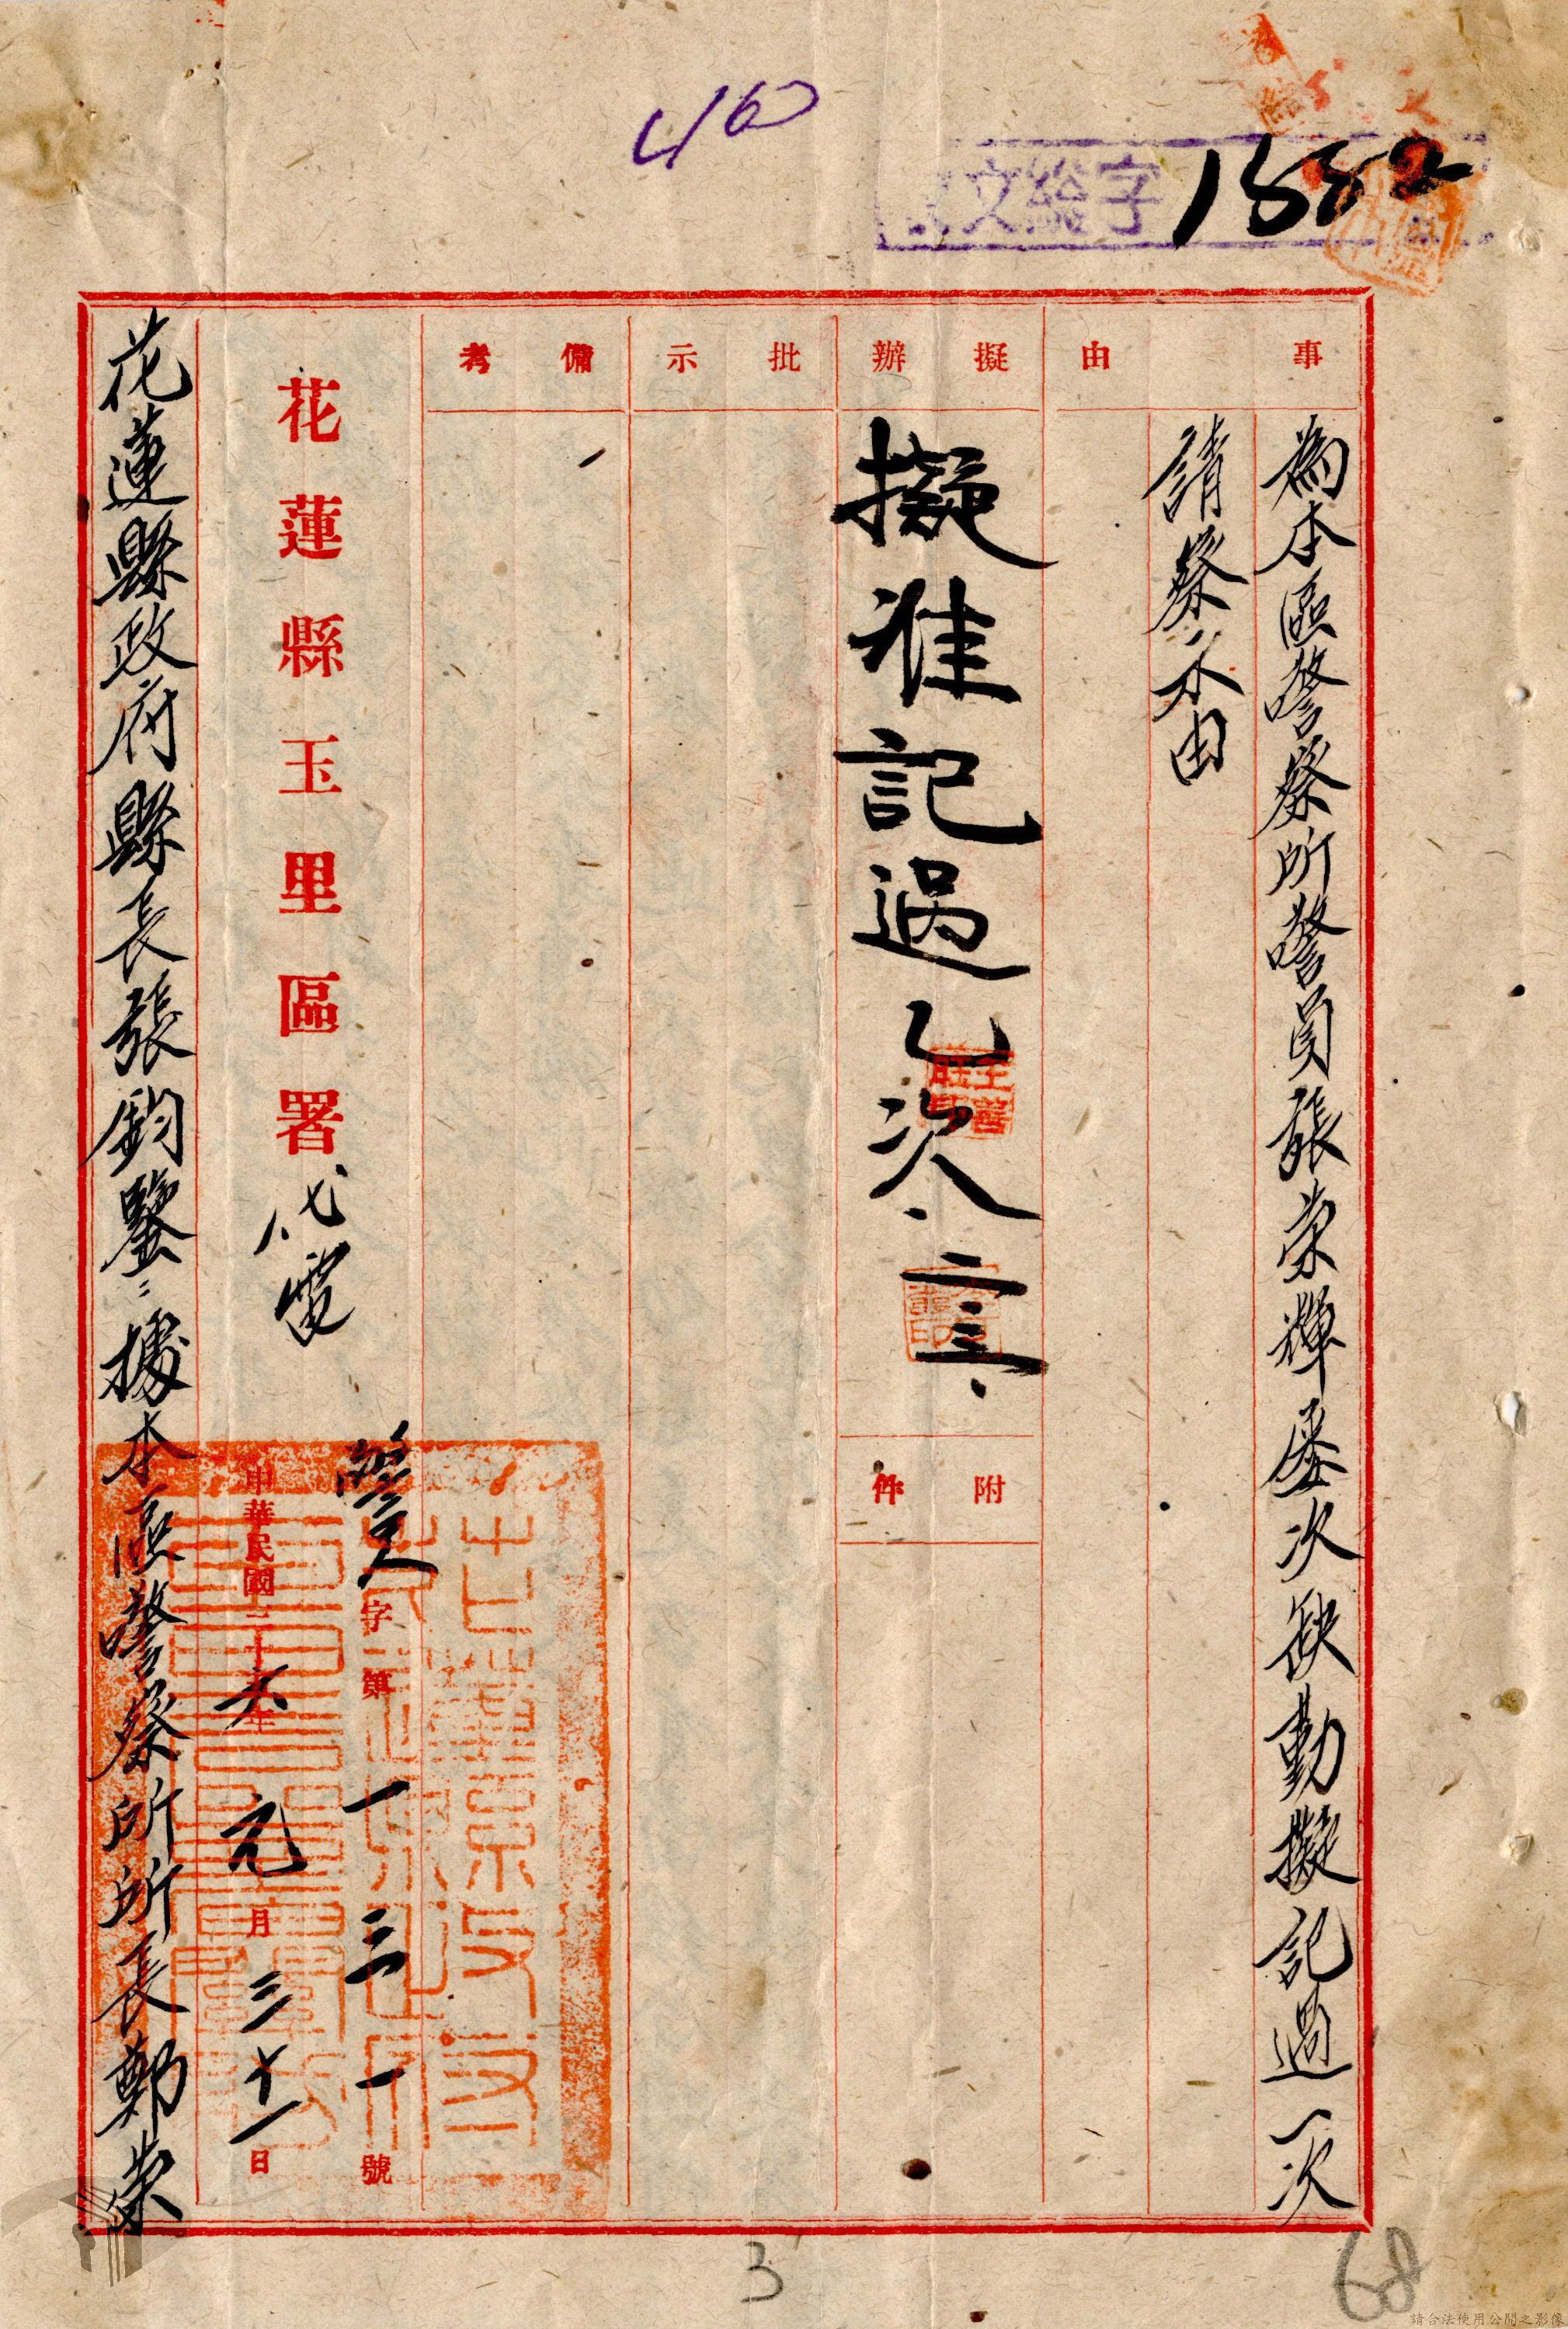 460
文總字1882
事由
為本區警察所警員張榮輝屢次缺勤擬記過一次
請察示由
擬辦
擬准記過乙次、
附件
批示
備考
警人字第一三一號
花蓮縣玉里區署代電
中華民國三十六年元月三十一日
花蓮縣政府縣長張鈞鑒:據本區警察所所長鄭榮
3
68
請合法使用公開之影像